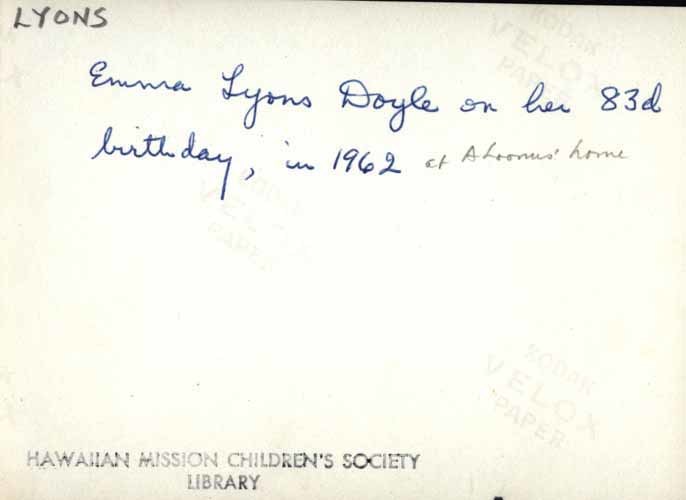 LYONS
Emma Lyons Doyle on her 83d
birthday, in 1962 at A Loomis' home
KODAK
VELOX
PAPER
KODAK
VELOX
PAPER
KODAK
VELOX
PAPER
HAWAIIAN MISSION CHILDREN'S SOCIETY
LIBRARY